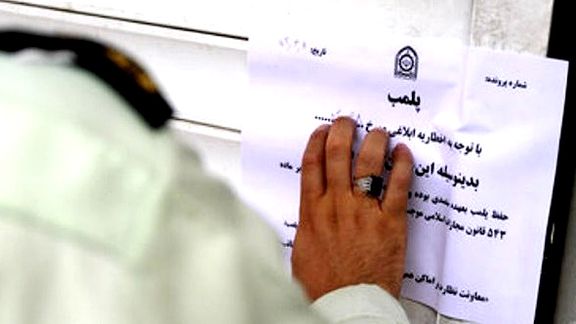 شماره پرونده:
تاریخ:
پلمب
با توجه به اخطاریه ابلاغی مورخ ............
بدینوسیله این
بر ماده
حفظ پلمب بعهده متصدی بوده و
۵۴۳ قانون مجازات اسلامی موجب
«معاونت نظارت بر اماکن